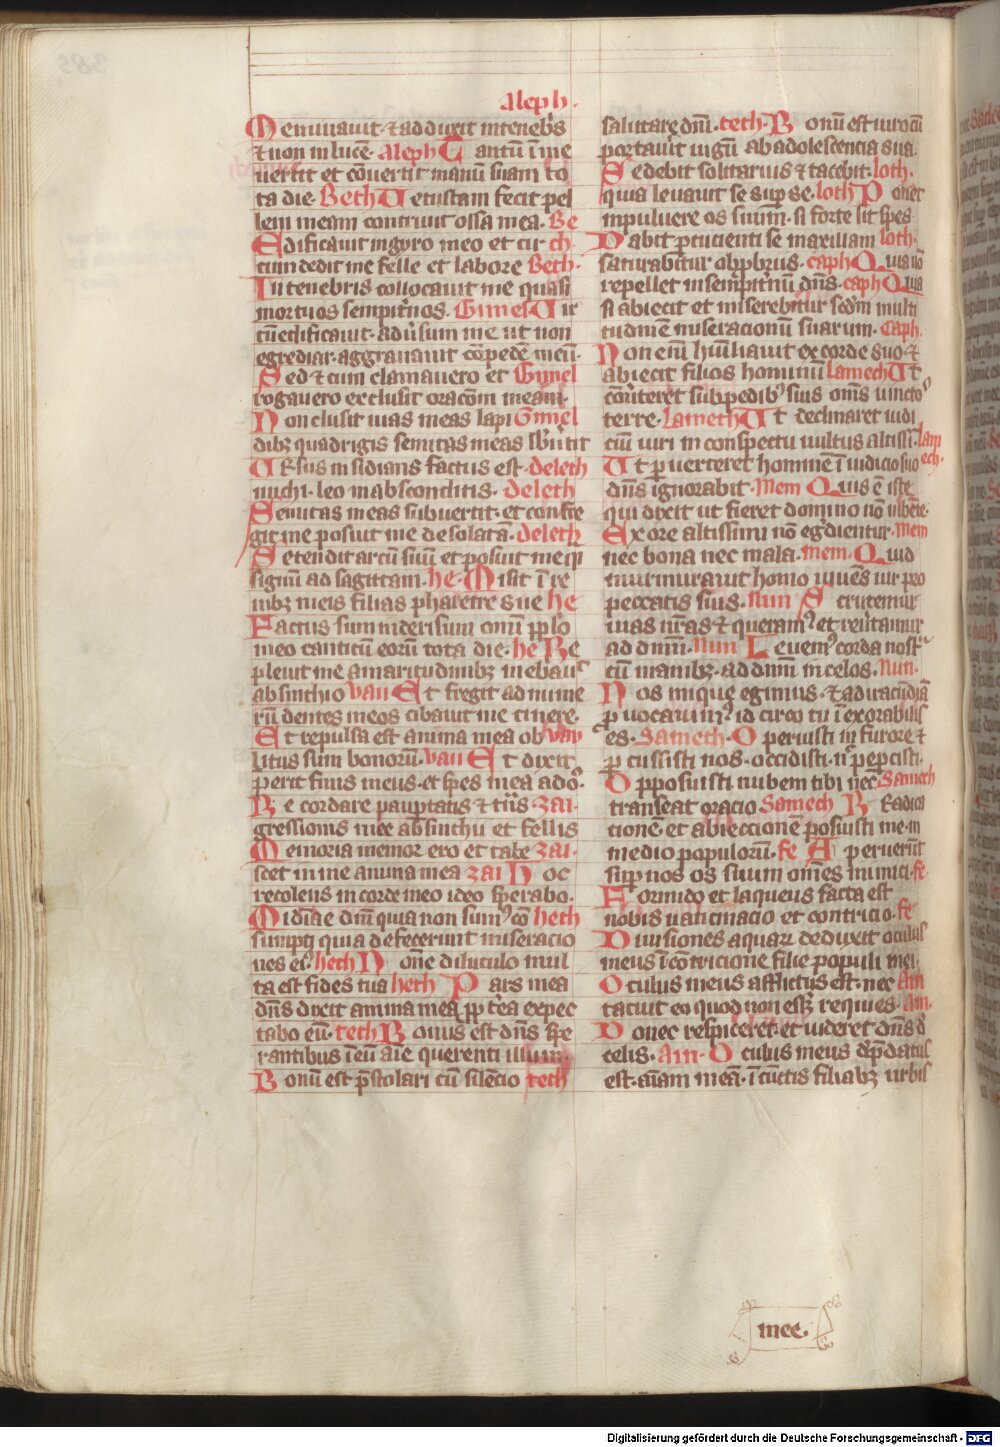 Aleph.
Me minavit ⁊ adduxit in tenebꝛ̄s
⁊ non in lucē. Aleph Tantū ī me
vertit et cōvertit manū suam to
ta die. Beth Vetustam fecit pel
lem meam contrivit ossa mea. Be
Edificavit in gyro meo et cir ch.
cum dedit me felle et labore Beth.
In tenebris collocavit me quasi
mortuos sempit̄nos. Gimel Cir
cū edificavit. adūsum me ut non
egrediar. aggravavit cōpedē meū.
Sed ⁊ cum clamavero et Gimel
rogavero exclusit oracōm meam.
Nonclusit vias meas lapi Gimel
dibꝫ quadrigis semitas meas sb̄utit
Ursus insidians factus est. deleth
michi. leo in absconditis. deleth
Semitas meas subvertit. et confre
git me posuit me desolatā. deleth
Setendit arcū suū et posuit me qͥ
signū ad sagittam. he. Misit ī re
nibꝫ meis filias pharetre sue he
Factus sum in derisum om̄i pplō
meo canticū eorū tota die. he Re
plevit me amaritudinibꝫ inebriaͧ
absinchio vau Et fregit ad nume
rū dentes meos cibavit me cinere.
Et repulsa est anima mea ob vau
litus sum bonorū. vau Et dixit
perit finis meus. et spes mea a dō.
Recordare paup̄tatis ⁊ t̄ns. zai.
gressionis mee absinchii et fellis
Memoria memor ero et tabe zai.
scet in me anima mea zai Hoc
recolens in corde meo ideo sperabo.
Midīae dn̄i quia non sumꝰ cō heth
sumpti quia defecerunt miseracio
nes eiꝰ. heth None diluculo mul
ta est fides tua heth Pars mea
dn̄s dixit anima mea pp t̄ea expec
tabo eū. tech Bonus est dn̄s spe
rantibus ī eū aīe querenti illum.
Bonū est p̄stolari cū silēcio tech
salutare dn̄i. tech. Bonū est viro cū
portavit iugū ab adolescencia sua.
Sedebit solitarius ⁊ tacebit. Ioth.
quia levavit se sup̄ se. Ioth Ponet
in pulvere os suūm. si forte sit spes
Dabit p̄cucienti se maxillam Ioth.
saturabitur obp̄briis. caph Quia nō
repellet in sempit̄nū dn̄s. caph Quia
si abiecit et miserebitur scdm multi
tudinē miseracionū suarum. Caph.
Non eiū hūiliavit ex corde suo ⁊
abiecit filios hominū Lamech Ut
cōtereret sub pedibꝰ suis om̄s vinctoˢ
terre. Lameth Ut declinaret iudi
ciū viri in conspectu vultus altissi. Lam
Ut p̄verteret hominē ī iudicio suo ech.
dn̄s ignorabit. Mem Quis ē iste
qui dixit ut fieret domino nō iubēte.
Ex ore altissimi nō eḡdientur. Mem
nec bona nec mala. mem. Quid
murmuravit homo vivēs vir pro
peccatis suis. Nun Scrutemur
vias nr̄as ⁊ queramꝰ et rev̄tamur
ad dn̄m. Nun Levemꝰ corda nostͣ
cū manibꝫ. ad dn̄m in celos. Nun.
Nos inique egimus. ⁊ ad iracūdiā
p̄vocavimꝰ idcirco tu ī exorabilis
es. Samech. Operuisti ī furore ⁊
p̄cussisti nos. occidisti. n̄ pepcisti.
Opposuisti nubem tibi nec Samech
transeat oracio Samech Eradica
cionē et abieccionē posuisti me in
medio populorū. fe Aperuerūt
sup̄ nos os suum om̄es inimici. fe
Formido et laqueus facta est
nobis vaticinacio et contricio. fe
Divisiones aquarū deduxit oculus
meus ī contricione filie populi mei.
Oculus meus afflictus est. nec Ain
tacuit eo quod non esset requies. Ain.
Donec respiceret et videret dn̄s d̄
celis. Ain. Oculus meus dep̄datus
est. aīam meā. ī cūctis filiabꝫ urbis
mee.
Digitalisierung gefördert durch die Deutsche Forschungsgemeinschaft - DFG